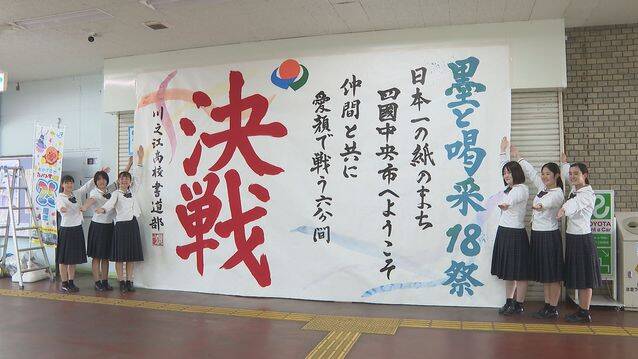 墨と喝采18祭
日本一の紙のまち
四國中央市へようこそ
仲間と共に
愛顔で戦う六分間
決戦
川之江高校書道部
TOYOTA
Rent a Car